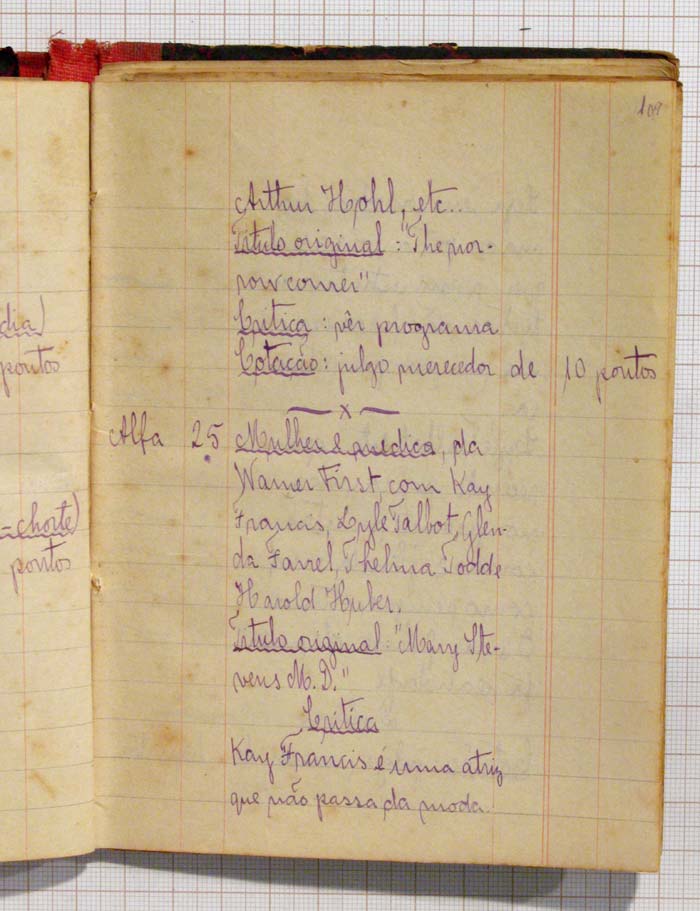 109
Arthur Hohl, etc..
Titulo original: "The nor-
row corner"
Critica: vêr programa
Cotação: julgo merecedor de 10 pontos
x
Alfa 25 Mulher e medica, da
Warner First, com Kay
Francis, Lyle Talbot, Glen-
da Farrel, Thelma Todd e
Harold Huber.
Titulo original: "Mary Ste-
vens M. D."
Critica
Kay Francis é uma atriz
que não passa da moda.
dia)
pontos
-chorte)
pontos